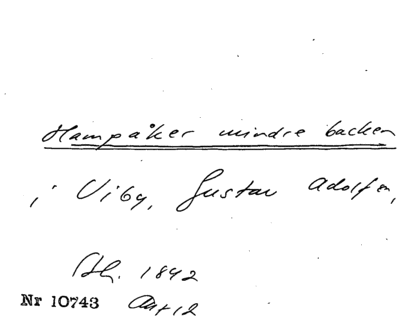 Hampåker mindre backen
i Viby, Gustav Adolf sn,
Sth. 1842
Nr 10743 Akt 12